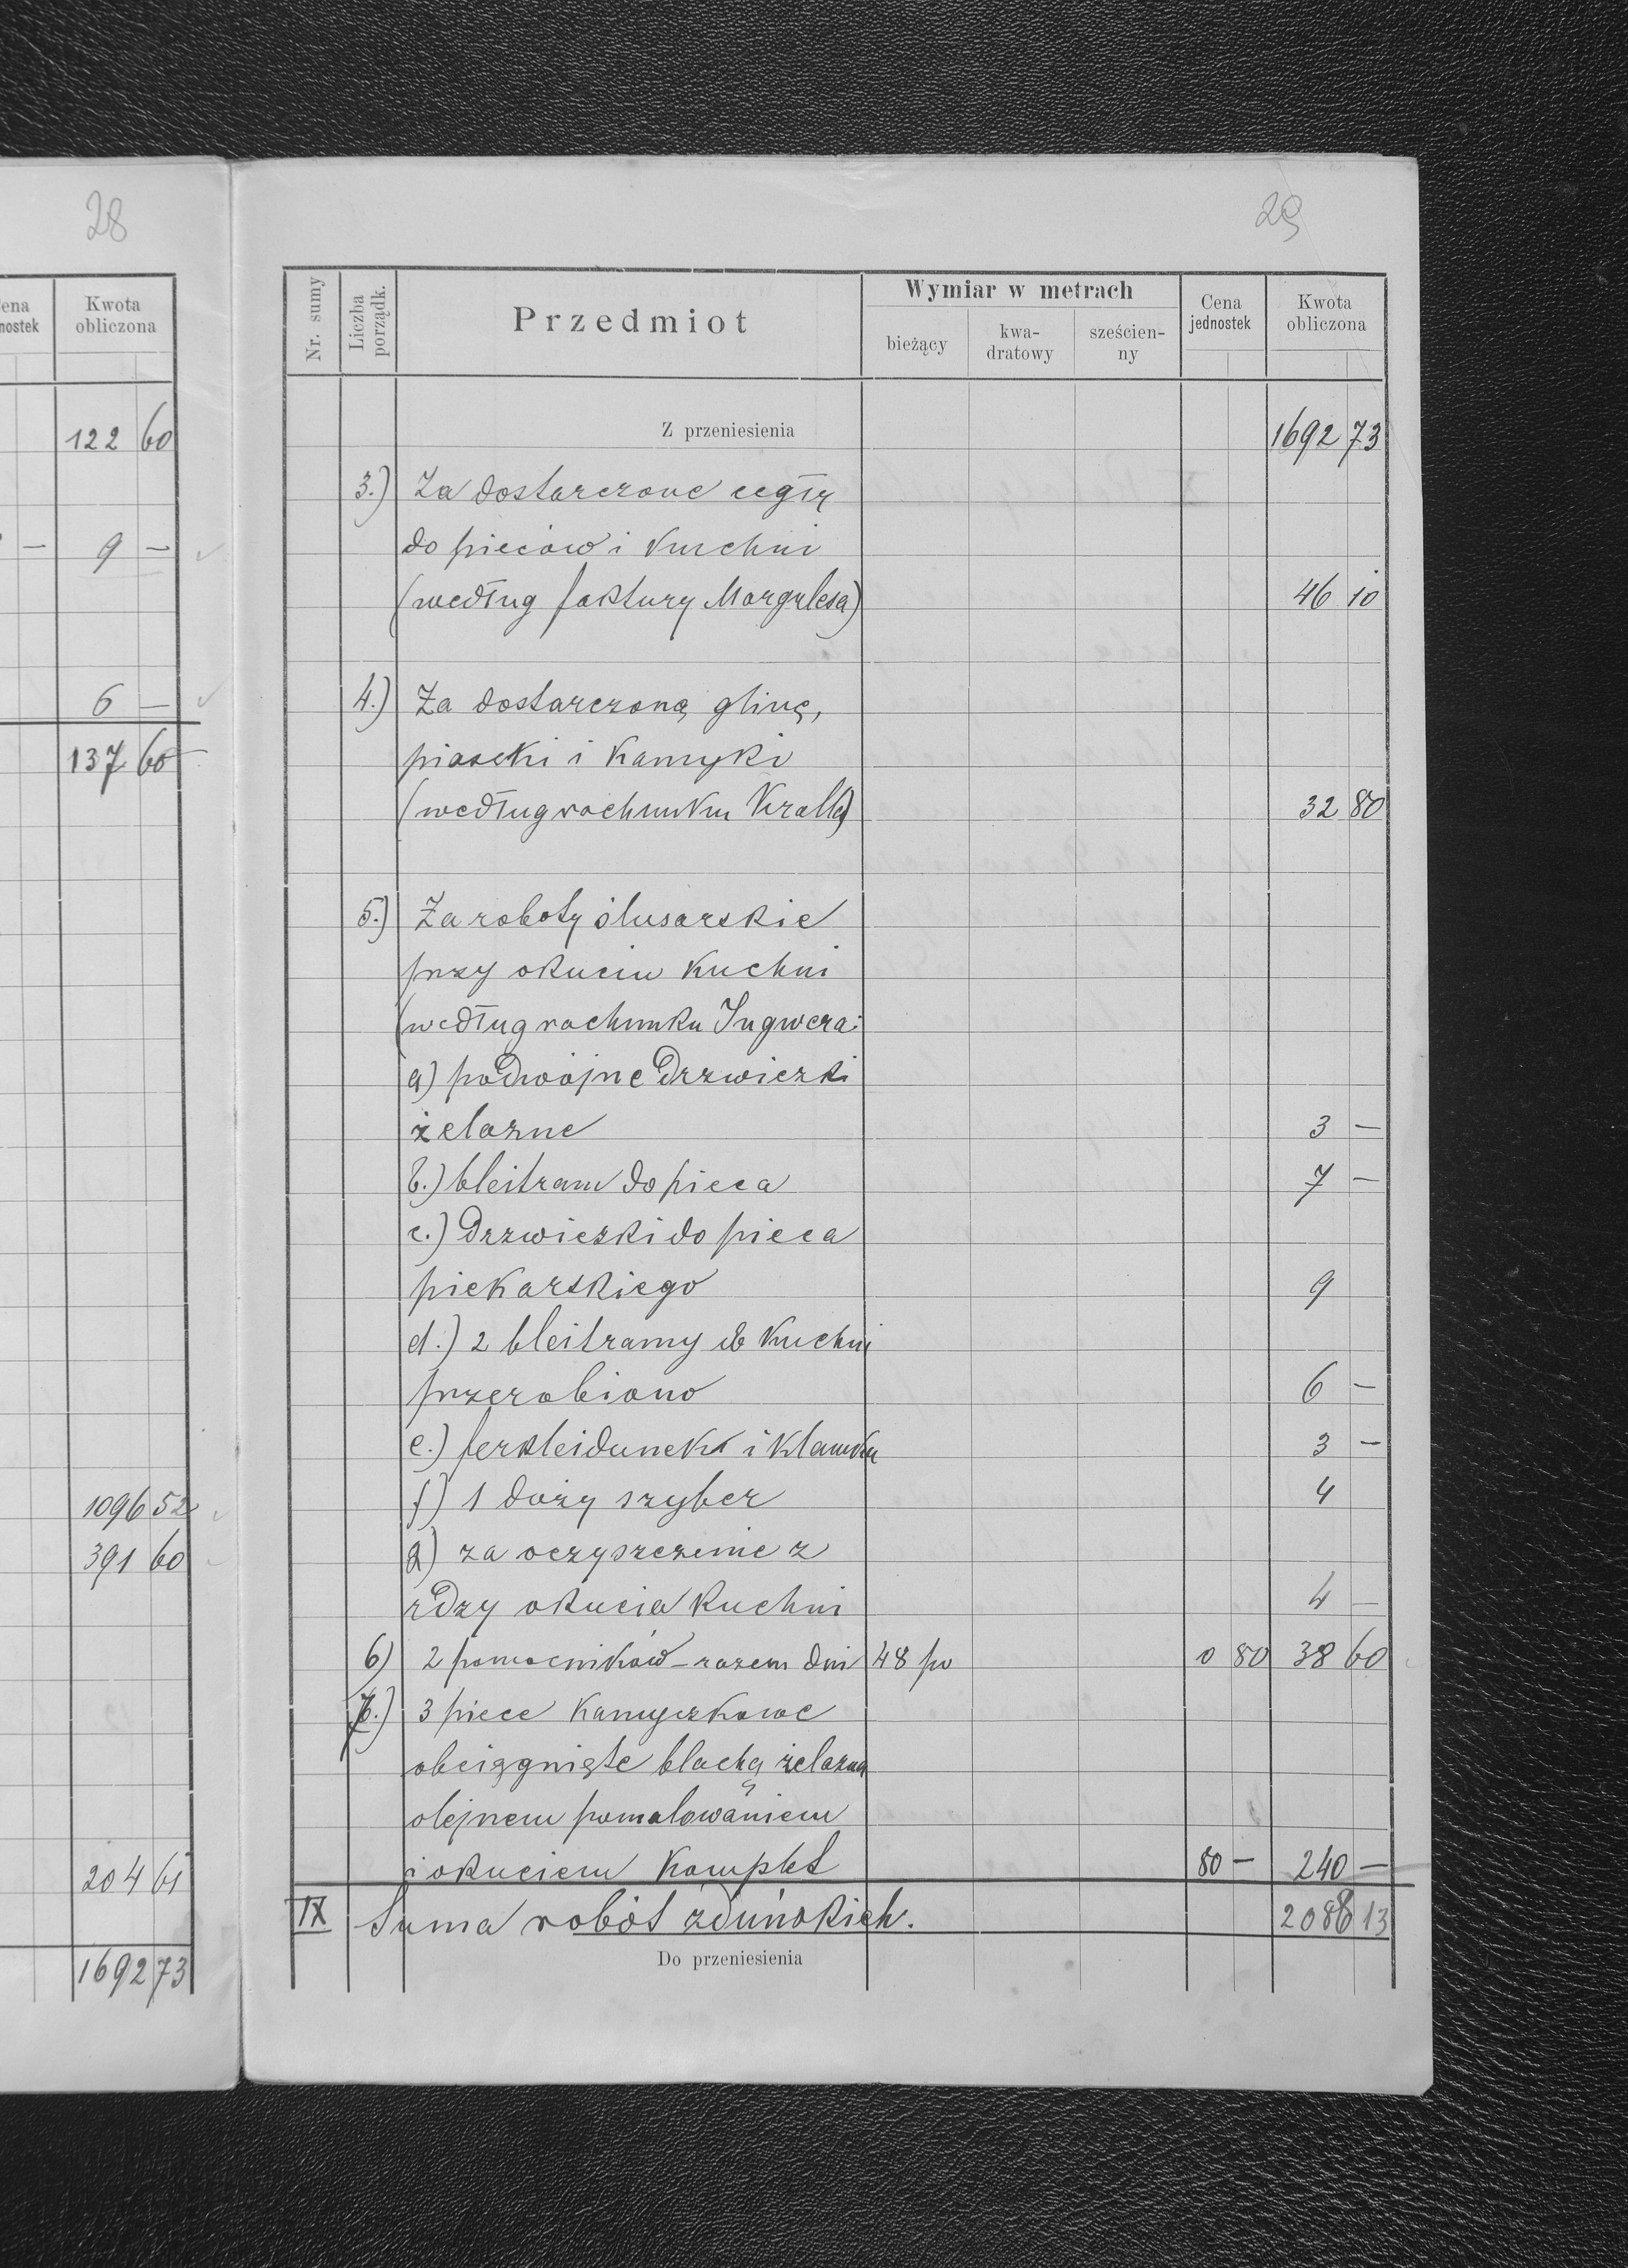 28
ena
nostek
Kwota
obliczona
122 60
— 9 —
6 —
137 60
1096 52
391 60
204 61
1692 73
29
Nr. sumy
Liczba porządk.
Przedmiot
Wymiar w metrach
bieżący
kwa-
dratowy
sześcien-
ny
Cena
jednostek
Kwota
obliczona
Z przeniesienia 1692 73
3.) Za dostarczone cegły
do pieców i kuchni
(według faktury Margulesa) 46 10
4.) Za dostarczoną glinę,
piaseki i kamyki
(według rachunku Kralla) 32 80
5.) Za roboty ślusarskie
przy okuciu kuchni
(według rachunku Ingwera:
a) podwójne drzwiczki
żelazne 3 —
b.) bleitram do pieca 7 —
c.) drzwiczki do pieca
piekarskiego 9
d.) 2 bleitramy do kuchni
przerobiono 6 —
e.) ferkleidunek i klamka 3 —
f) 1 duży szyber 4
g) za oczyszczenie z
rdzy okucia kuchni 4 —
6) 2 pomocników - razem dni 48 po 0 80 38 60
7.) 3 piece kamyczkowe
obciągnięte blachą żelazną
olejnem pomalowaniem
i okuciem komplet 80 — 240 —
IX Suma robót zduńskich. 2086 13
Do przeniesienia